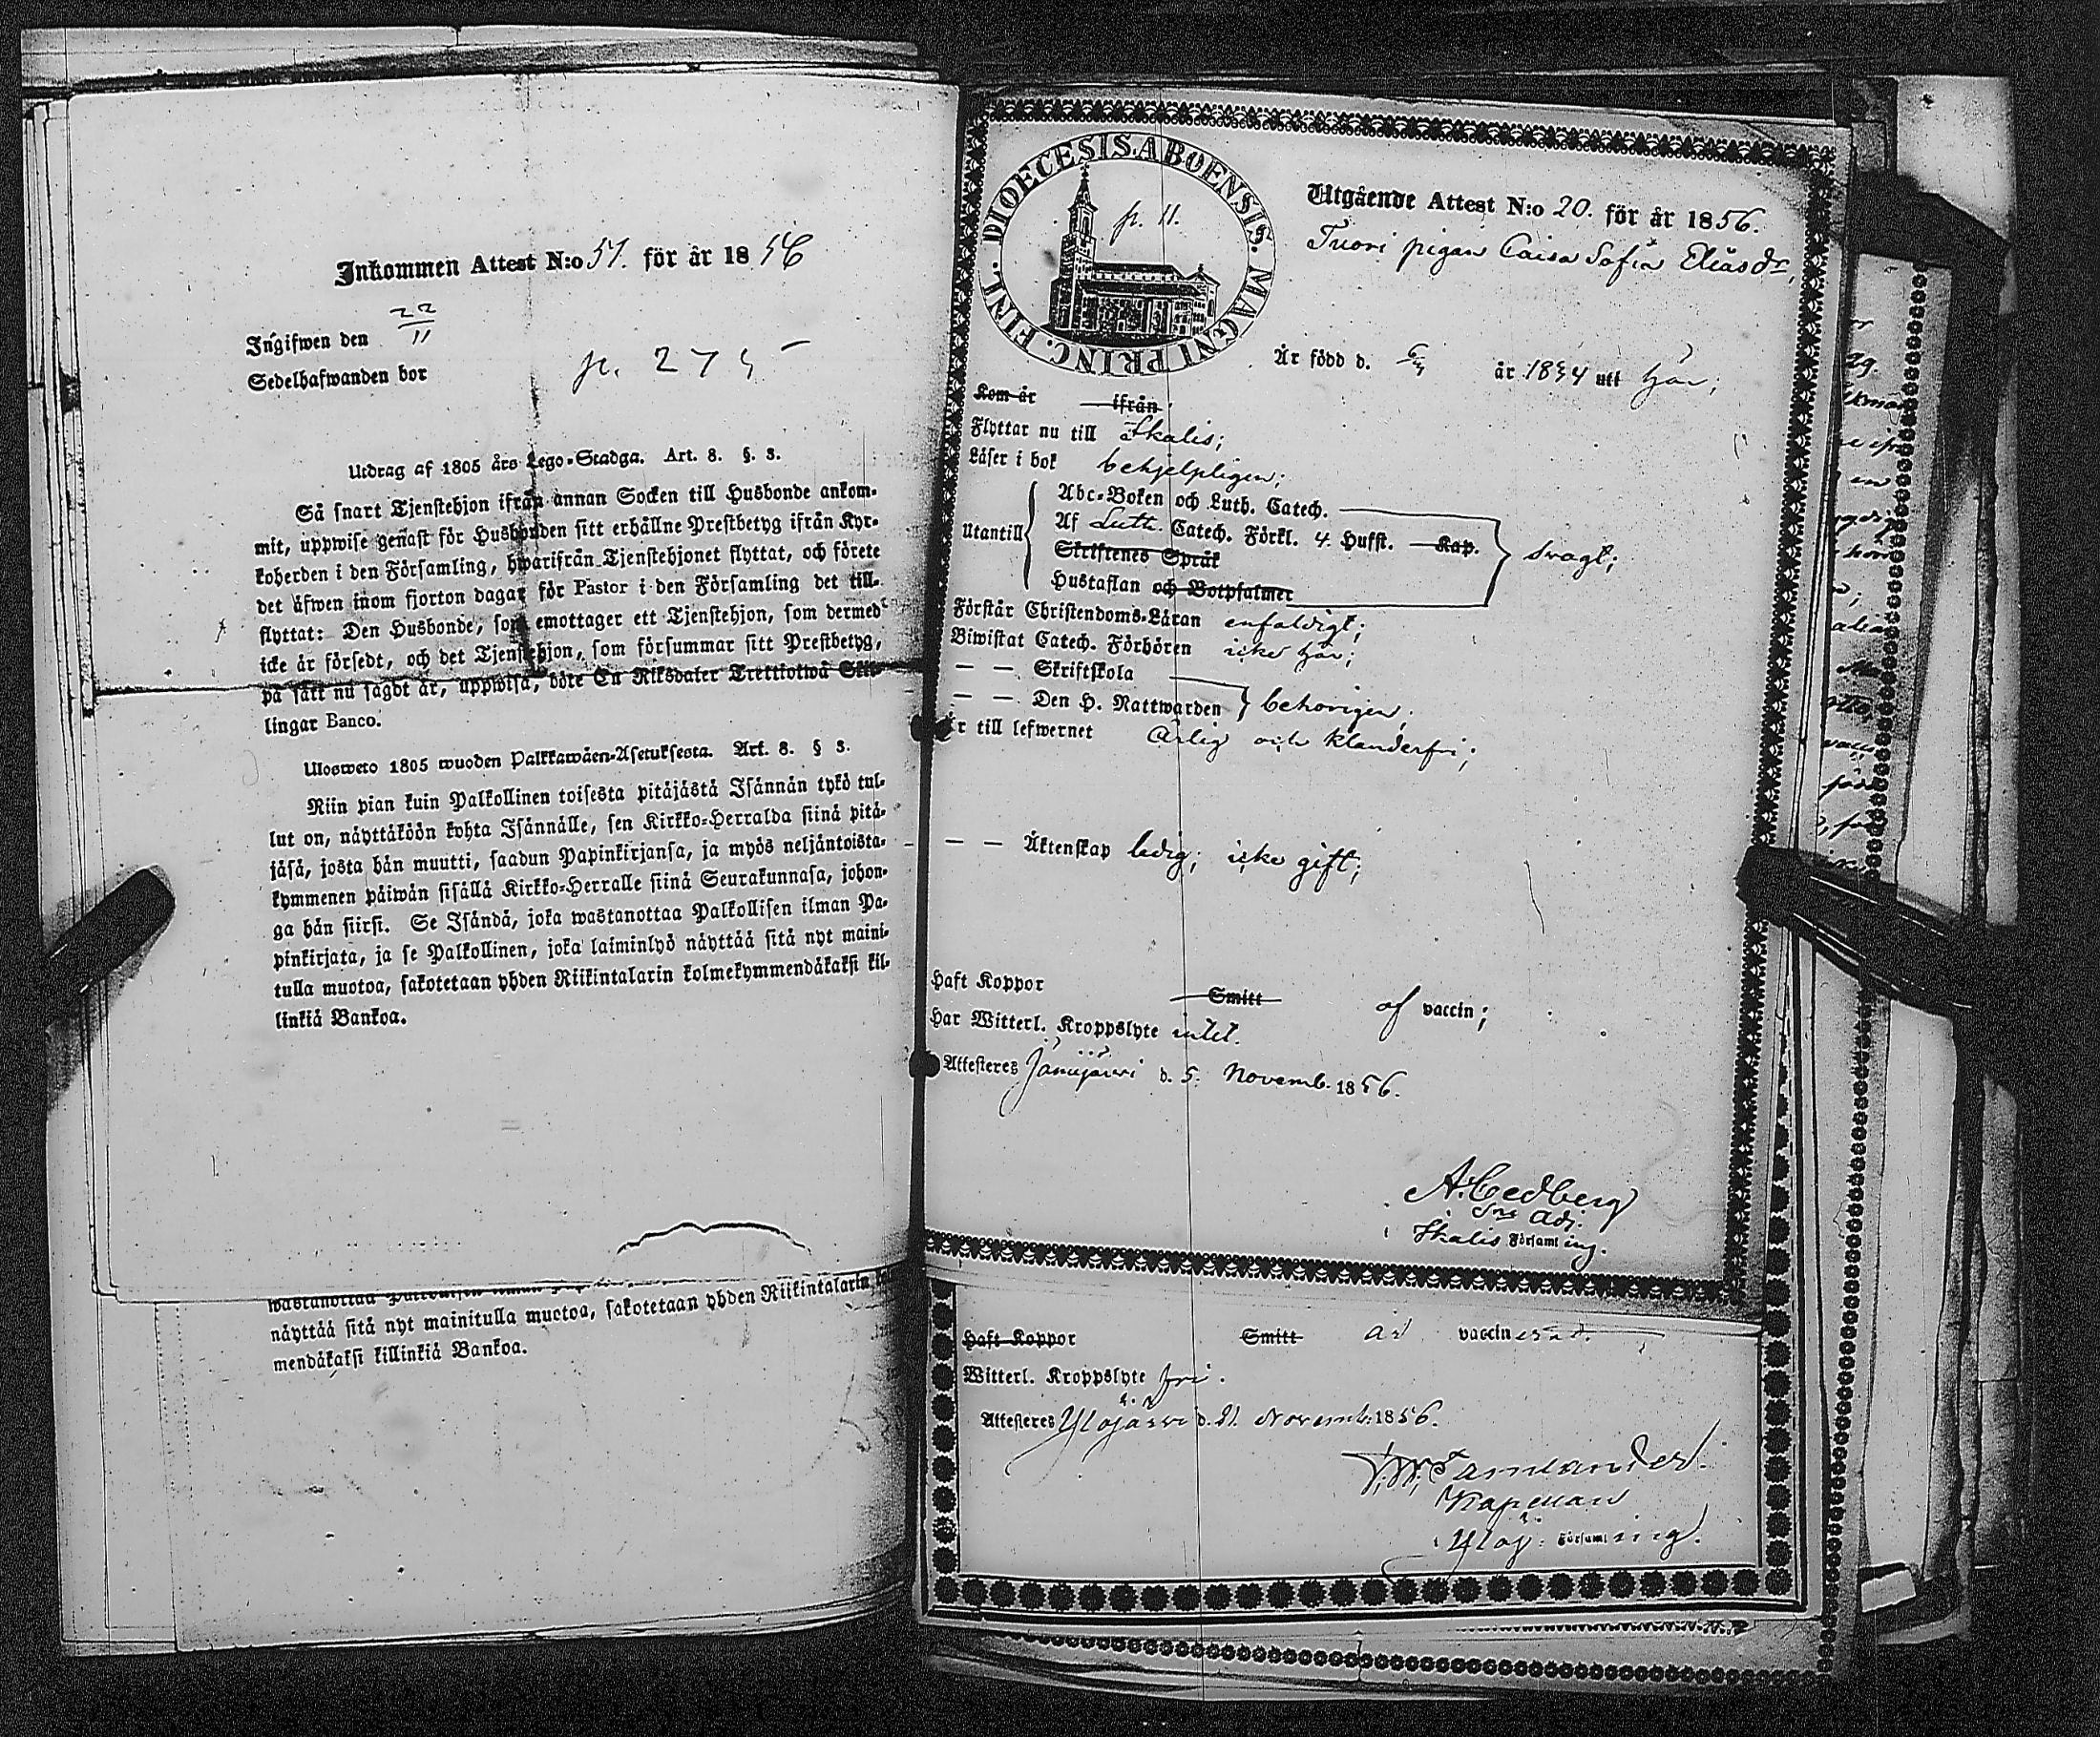 Inkommen Attest N:o 51. för år 1856
Ingifwen den 22/11
Sedelhafwanden bor p. 275
Utdrag af 1805 års Lego-Stadga. Art. 8. §. 3.
Så snart Tjenstehjon ifrån annan Socken till Husbonde ankom-
mit, uppwise genast för Husbonden sitt erhållne Prestbetyg ifrån Kyr-
koherden i den Församling, hwarifrån Tjenstehjonet flyttat, och förete
det äfwen inom fjorton dagar för Pastor i den Församling det till-
flyttat: Den Husbonde, som emottager ett Tjenstehjon, som dermed
icke är försedt, och det Tjenstehjon, som försummar sitt Prestbetyg,
på sätt nu sagdt är, uppwisa, böte En Riksdaler Trettiotwå Skil-
lingar Banco.
Ulosweto 1805 wuoden Palkkawäen-Asetuksesta. Art. 8. § 3.
Niin pian kuin Palkollinen toisesta pitäjästä Isännän tykö tul-
lut on, näyttäköön kohta Isännälle, sen Kirkko-Herralda siinä pitä-
jäsä, josta hän muutti, saadun Papinkirjansa, ja myös neljäntoista-
kymmenen päiwän sisällä Kirkko-Herralle siinä Seurakunnasa, johon-
ga hän siirsi. Se Isändä, joka wastanottaa Palkollisen ilman Pa-
pinkirjata, ja se Palkollinen, joka laiminlyö näyttää sitä nyt maini-
tulla muotoa, sakotetaan yhden Riikintalarin kolmekymmendäkaksi kil-
linkiä Bankoa.
näyttää sitä nyt mainitulla muotoa, sakotetaan yhden Riikintalarin
mendäkaksi killinkiä Bankoa.
DIOECESIS. ABOENSIS. MAGNI PRINC. FINL.
p. 11.
Utgående Attest N:o 20. för år 1856.
pigan Caisa Sofia Eliasdr
Är född d. år 1834 uti här;
Kom år ifrån
Flyttar nu till Ikalis;
Läser i bok behjelpligen;
Utantill
Abc-Boken och Luth. Catech.
Af Luth. Catech. Förkl. 4. Hufst. Kap.
Skriftenes Språk
Hustaflan och Botpsalmer
svagt;
Förstår Christendoms-Läran enfaldigt;
Biwistat Catech. Förhören icke här;
— — Skriftskola
— — Den H. Nattwarden behörigen;
Är till lefwernet ärlig och klanderfri;
— — Äktenskap ledig; icke gift;
Haft Koppor Smitt af vaccin;
Har Witterl. Kroppslyte intet.
Attesteres Jämijärvi d. 5. Novemb. 1856.
A. Cedberg
Adj.
i Ikalis Församling.
Haft Koppor Smitt är vaccinerad.
Witterl. Kroppslyte fri.
Attesteres Ylöjärvi d. 21. Novemb. 1856.
Kapellan
i Ylöj. Församling.